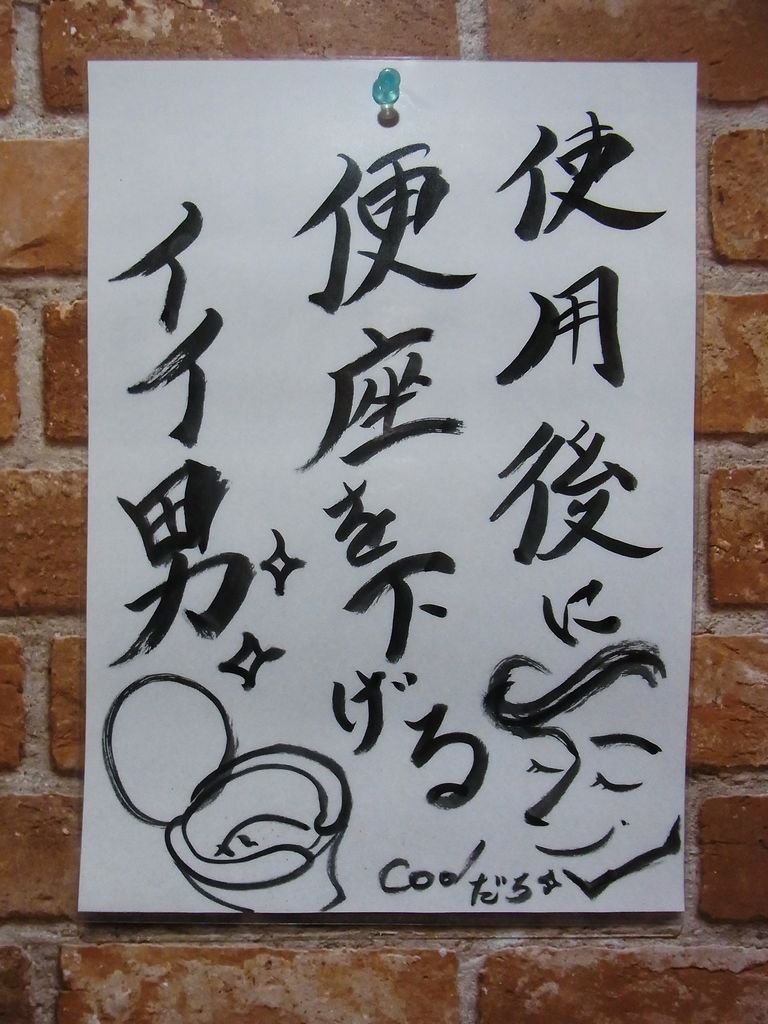 使用後に
便座を下げる
イイ男
Coolだろ